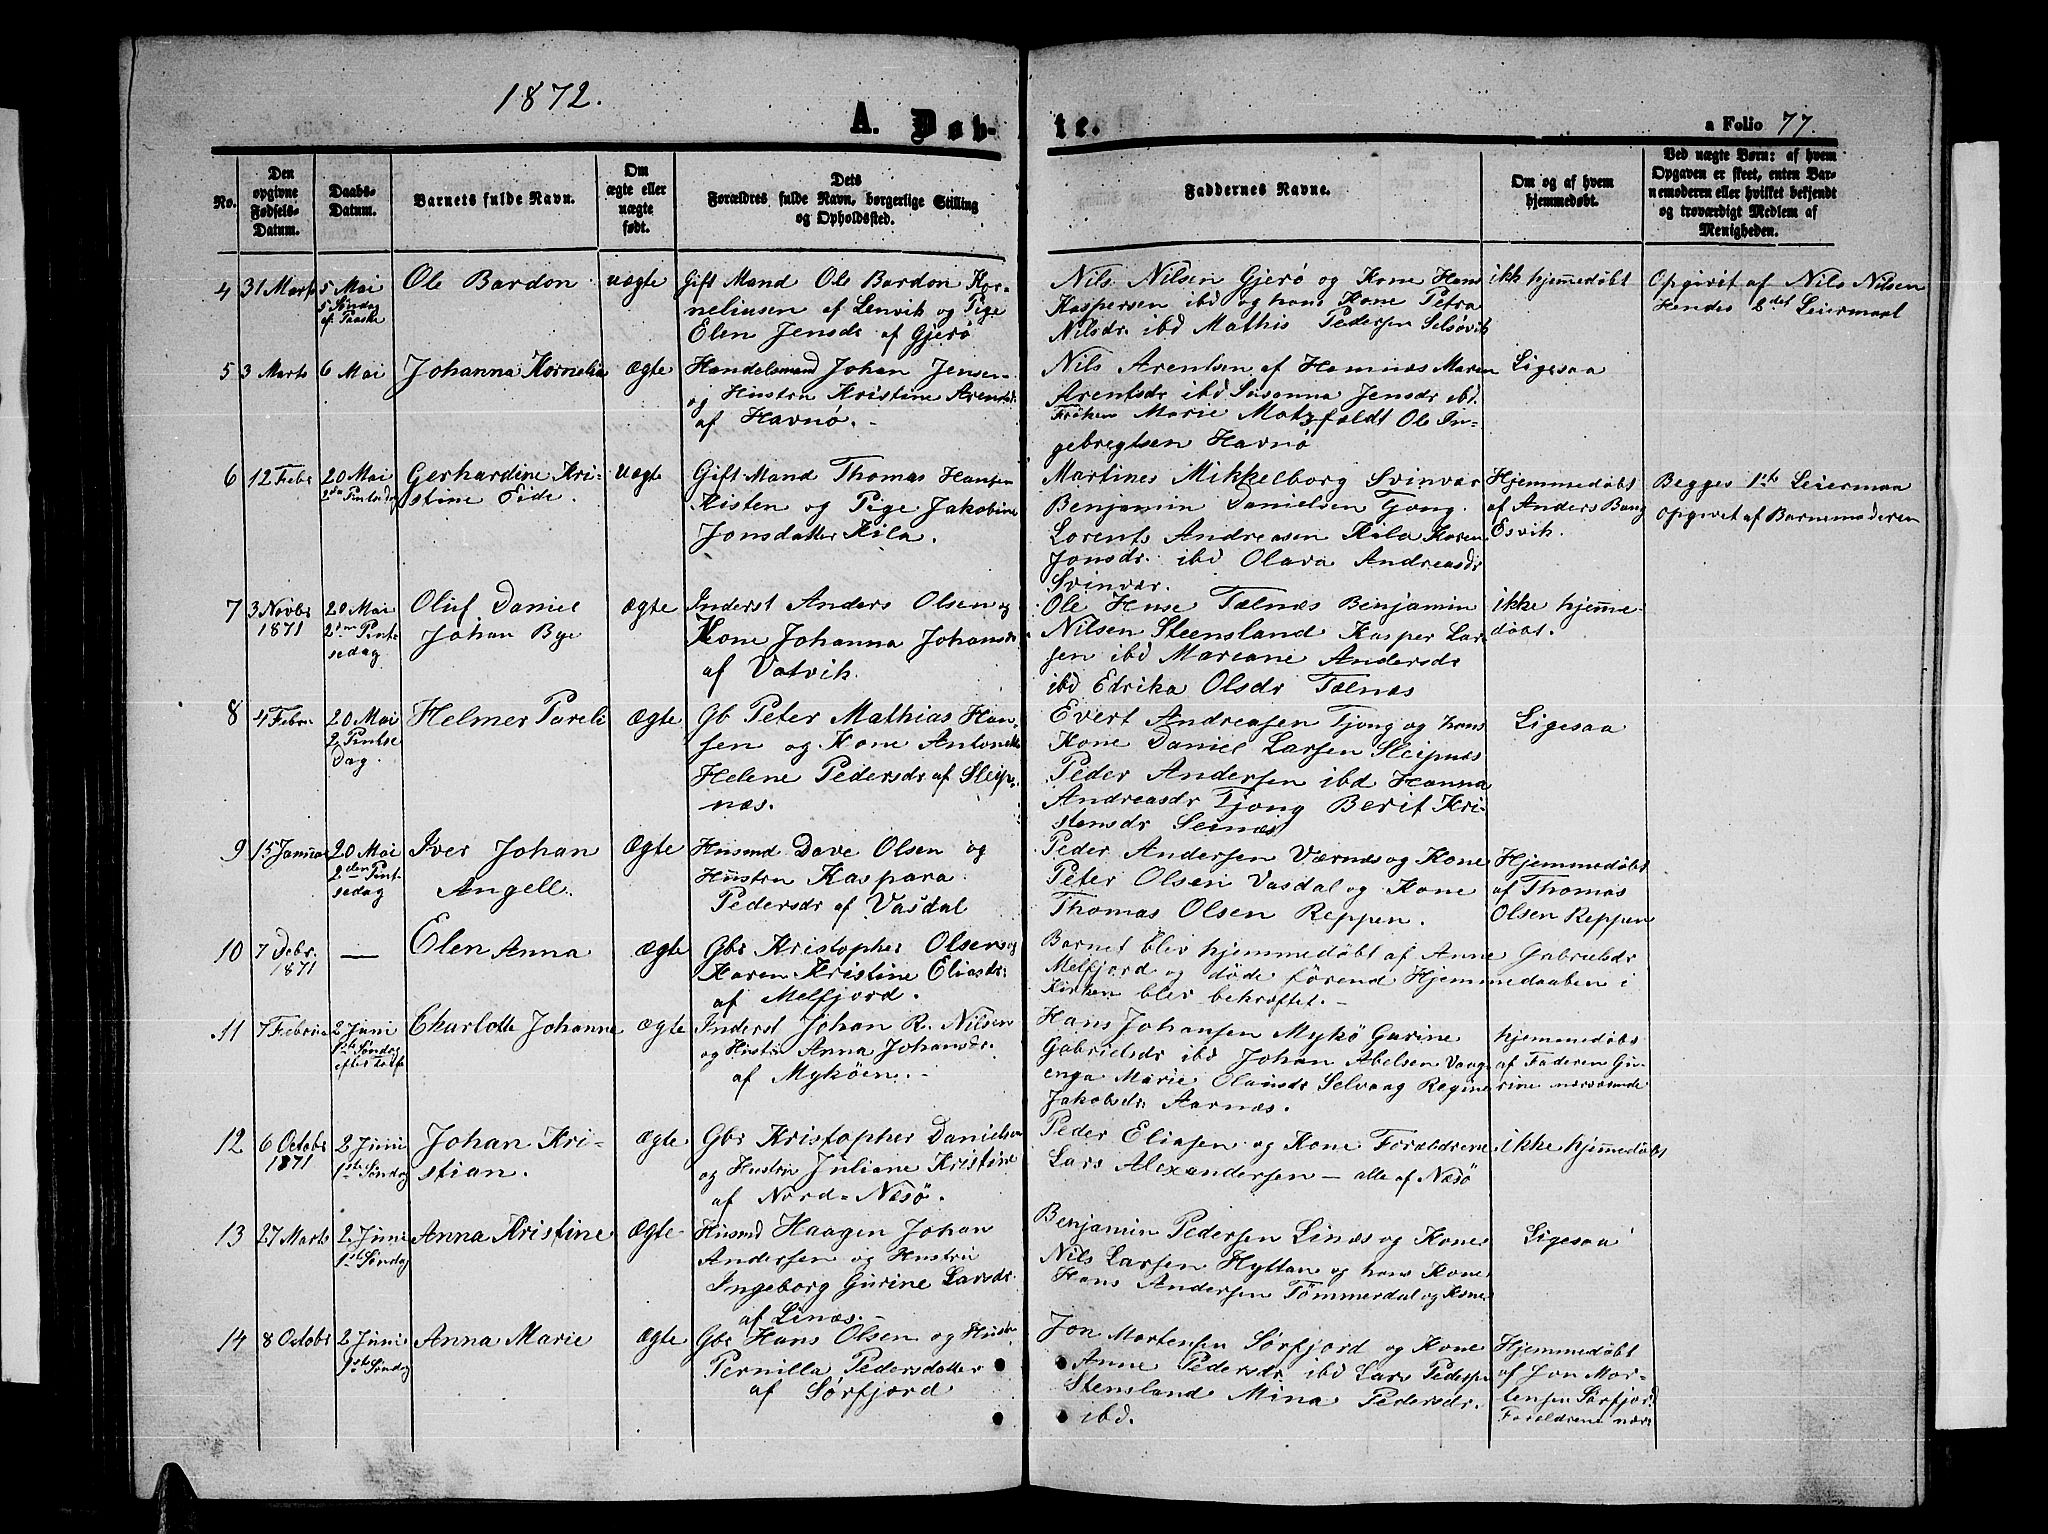 1872.
A. Døb-
te.
a Folio 77.
No.
Den
opgivne
Fødsels-
Datum.
Daabs-
Datum.
Barnets fulde Navn.
Om
ægte eller
uægte
født.
Dets
Forældres fulde Navn, borgerlige Stilling
og Opholdssted.
Faddernes Navne.
Om og af hvem
hjemmedøbt.
Ved uægte Børn: af hvem
Opgaven er skeet, enten Bar-
nemoderen eller hvilket bekjendt
og troværdigt Medlem af
Menigheden.
4
31 Marts
5 Mai
5 Søndag
ef. Paaske
Ole Bardon
uægte
Gift Mand Ole Bardon Kor-
neliusen af Lenvik og Pige
Elen Jensdr af Gjerø
Nils Nilsen Gjerø og Kone Hans
Kaspersen ibd og hans Kone Petra
Nilsdr ibd Mathis Pedersen Selsøvik
ikk hjemedøbt
Opgivet af Nils Nilsen
Hendes 2det Leiermaal
5
3 Marts
6 Mai
Johanna Kornelia
Ægte
Handelsmand Johan Jensen
og Hustru Kristine Arensdr
af Havnø.
Nils Arentsen af Hemnæs Maren
Arentsdr ibd Susanna Jensdr ibd.
Frøken Marie Motzfeldt Ole In-
gebregtsen Havnø
Ligesaa
6
12 Febr
20 Mai
2den Pintsedag
Gerhardine Kri-
stine Fide.
Uægte
Gift Mand Thomas Hansen
Kisten og Pige Jakobine
Jonsdatter Kila.
Martines Mikkelborg Svinvær
Benjamin Danielsen Tjong.
Lorents Andreasen Kila Karen
Jonsdr. ibd Olava Andreasdr
Svinvær.
Hjemmedøbt
af Anders Bang
Esvik.
Begges 1ste Leiermaa
opgivet af Barnemoderen
7
3 Novbr
1871
20 Mai
2den Pint
sedag
Oluf Daniel
Johan Bye
Ægte
Inderst Anders Olsen og
Kone Johanna Johansdr
af Vatvik.
Ole Huse Tælnæs Benjamin
Nilsen Steensland Kasper Lar-
sen ibd Mariane Andersdr
ibd Edrika Olsdr Tælnæs
ikke hjemme-
døbt.
8
4 Febr.
20 Mai
2 Pintse
Dag.
Helmer Pareli
Ægte
Gb Peter Mathias Han-
sen og Kone Antonette
Helene Pedersdr af Sleip-
næs.
Evert Andreasen Tjong og hans
Kone Daniel Larsen Sleipnæs
Peder Andersen ibd Hanna
Andreasdr Tjong Berit Kri-
stensdr Seinæs
Ligesaa
9
15 Januar
20 Mai
2den Pint-
sedag
Iver Johan
Angell.
Ægte
Husmd Dave Olsen og
Hustru Kaspara
Pedersdr af Vasdal
Peder Andersen Værnæs og Kone
Peter Olsen Vasdal og Kone
Thomas Olsen Reppen.
Hjemmedøbt
af Thomas
Olsen Reppen
10
7 Debr.
1871
—
Elen Anna
Ægte
Gbr Kristopher Olsen og
Karen Kristine Eliasdr.
af Melfjord.
Barnet blev hjemmedøbt af Anne Gabrielsdr
Melfjord og døde førend Hjemmedaaben i
Kirken blev bekræftet.
11
7 Februar
2 Juni
1ste Søndag
efter
Charlotte Johanne
Ægte
Inderst Johan R. Nilsen
og Hustru Anna Johansdr.
af Mykøen.
Hans Johansen Mykø Gurine
Gabrielsdr ibd Johan Abelsen Vaag-
enga Marie Olausdr Selvaag Regine
Jakobsdr Aarnæs.
hjemmedøbt
af Faderen Gu-
rine nærværende
12
6 Octobr
1871
2 Juni
1ste Søndag
Johan Kri-
stian.
Ægte
Gbr Kristopher Danielsen
og Hustru Juliane Kristine
af Nord-Næsø.
Peder Eliasen og Kone Forældrene
Lars Alexandersen – alle af Næsø
ikke hjemedøbt
13
27 Marts
2 Juni
1ste Søndag
Anna Kristine
Ægte
Husmd Haagen Johan
Andersen og Hustru
Ingeborg Gurine Larsdr.
af Linæs.
Benjamin Pedersen Linæs og Kone
Nils Larsen Hyttan og hans Kone
Hans Andersen Tømmerdal og Kone
Ligesaa
14
8 Octobr
2 Juni
1ste Søndag
Anna Marie
Ægte
Gbr Hans Olsen og Hustr
Pernilla Pedersdatter
af Sørfjord
Jon Mortensen Sørfjord og Kone
Anne Pedersdr. ibd Lars Pedersen
Stensland Mina Pedersdr.
ibd.
Hjemmedøbt
af Jon Mor-
tensen Sørfjord
Forældrene nærv